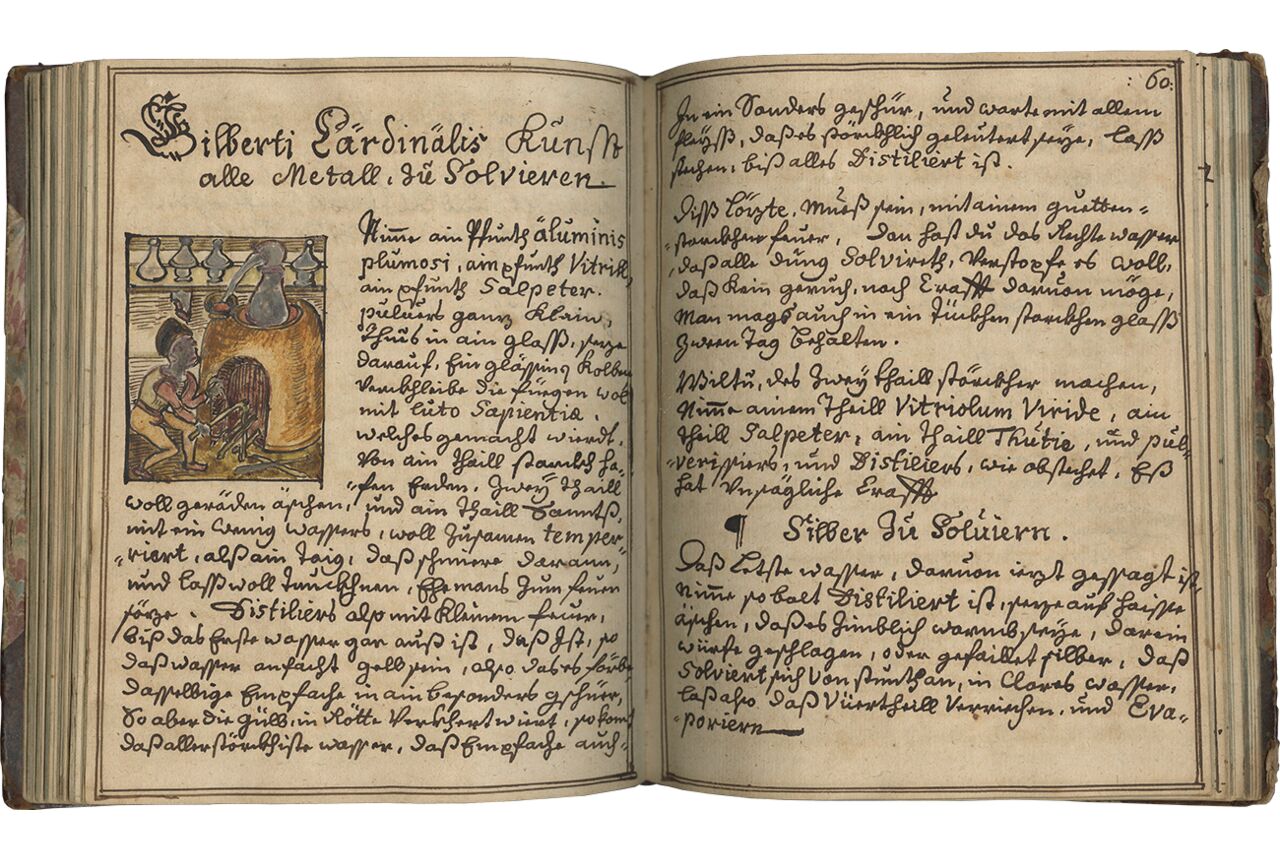 Gilberti Cärdinälis Kunst
alle Metall, zu Solvieren
Nimme ain Pfunth äluminis
plumosi, ain pfunth Vitrill,
ain pfunth Salpeter.
pulvers ganz Klain,
Thues in ain glaß, seze
darauf, Ein glässinş Kolben
Verckhleibe die fuegen wol
mit luto Sapientiæ,
welches gemacht wierdt,
Von ain Thaill starckh ha-
-fen Erden, Zwey Thaill
woll geräden äschen, und ain Thaill
mit ein wenig wassers, woll Zusamen temper-
-riert, alß ain Taig, daß schmiere daran,
und laß woll Truckhnen, Ehe mans Zum feuer
sörze. Distiliers also mit Kleinem feuer,
biß das Erste wasser gar auß ist, daß Ist, so
daß wasser anfacht gelb sein, also das es färbt
dasselbige Empfache in ain besonders gschüer,
So aber die gülb, in Rötte Verkhert wiert, so komt
daß aller störckhiste wasser, daß Empfache auch
: 60:
In ein Sonders geschür, und warte mit allem
fleyß, daß es störckhlich geleutert seye, laß
stechen, biß alles Distiliert ist.
Diß lözte, mueß sein, mit ainem guetten
starckhen feuer, dan hast du das Rechte wasser
daß alle ding Solvireth, Verstopfe es woll,
daß Kein geruch, noch Crafft darvon möge,
Man mags auch in ein Dickhen starckhen glaß
Zween Tag behalten.
Wiltu, des Zwey thaill störckher machen,
Nimme ainem Theill Vitriolum Viride, ain
theill Salpeter, ain Thaill Thutie, und pul-
-verissiers, und Distiliers, wie obstehet. Eß
hat Unsägliche Crafft
¶ Silber Zu Solviern.
Daß Letste wasser, darvon iezt gesagt ist
Nimme so balt Distiliert ist, seze auf haisse
äschen, daß es Zimblich warmb seye, darein
würfe geschlagen, oder gefailtet silber, daß
Solviert sich Von stundt an, in Clares wasser,
laß also daß Viertheill Verriechen, und Eva-
-poriern